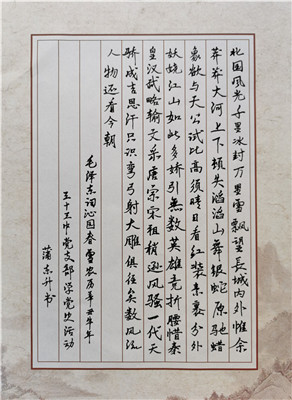 北国风光千里冰封万里雪飘望長城内外惟余
莽莽大河上下顿失滔滔山舞银蛇原驰蜡
象欲与天公试比高须晴日看红装素裹分外
妖娆江山如此多娇引無数英雄竞折腰惜秦
皇汉武略输文采唐宗宋祖稍逊风骚一代天
骄成吉思汗只识弯弓射大雕俱往矣数风流
人物还看今朝
毛泽东词沁园春 雪 农历辛丑牛年
十三中党支部学党史活动
蒲东升书